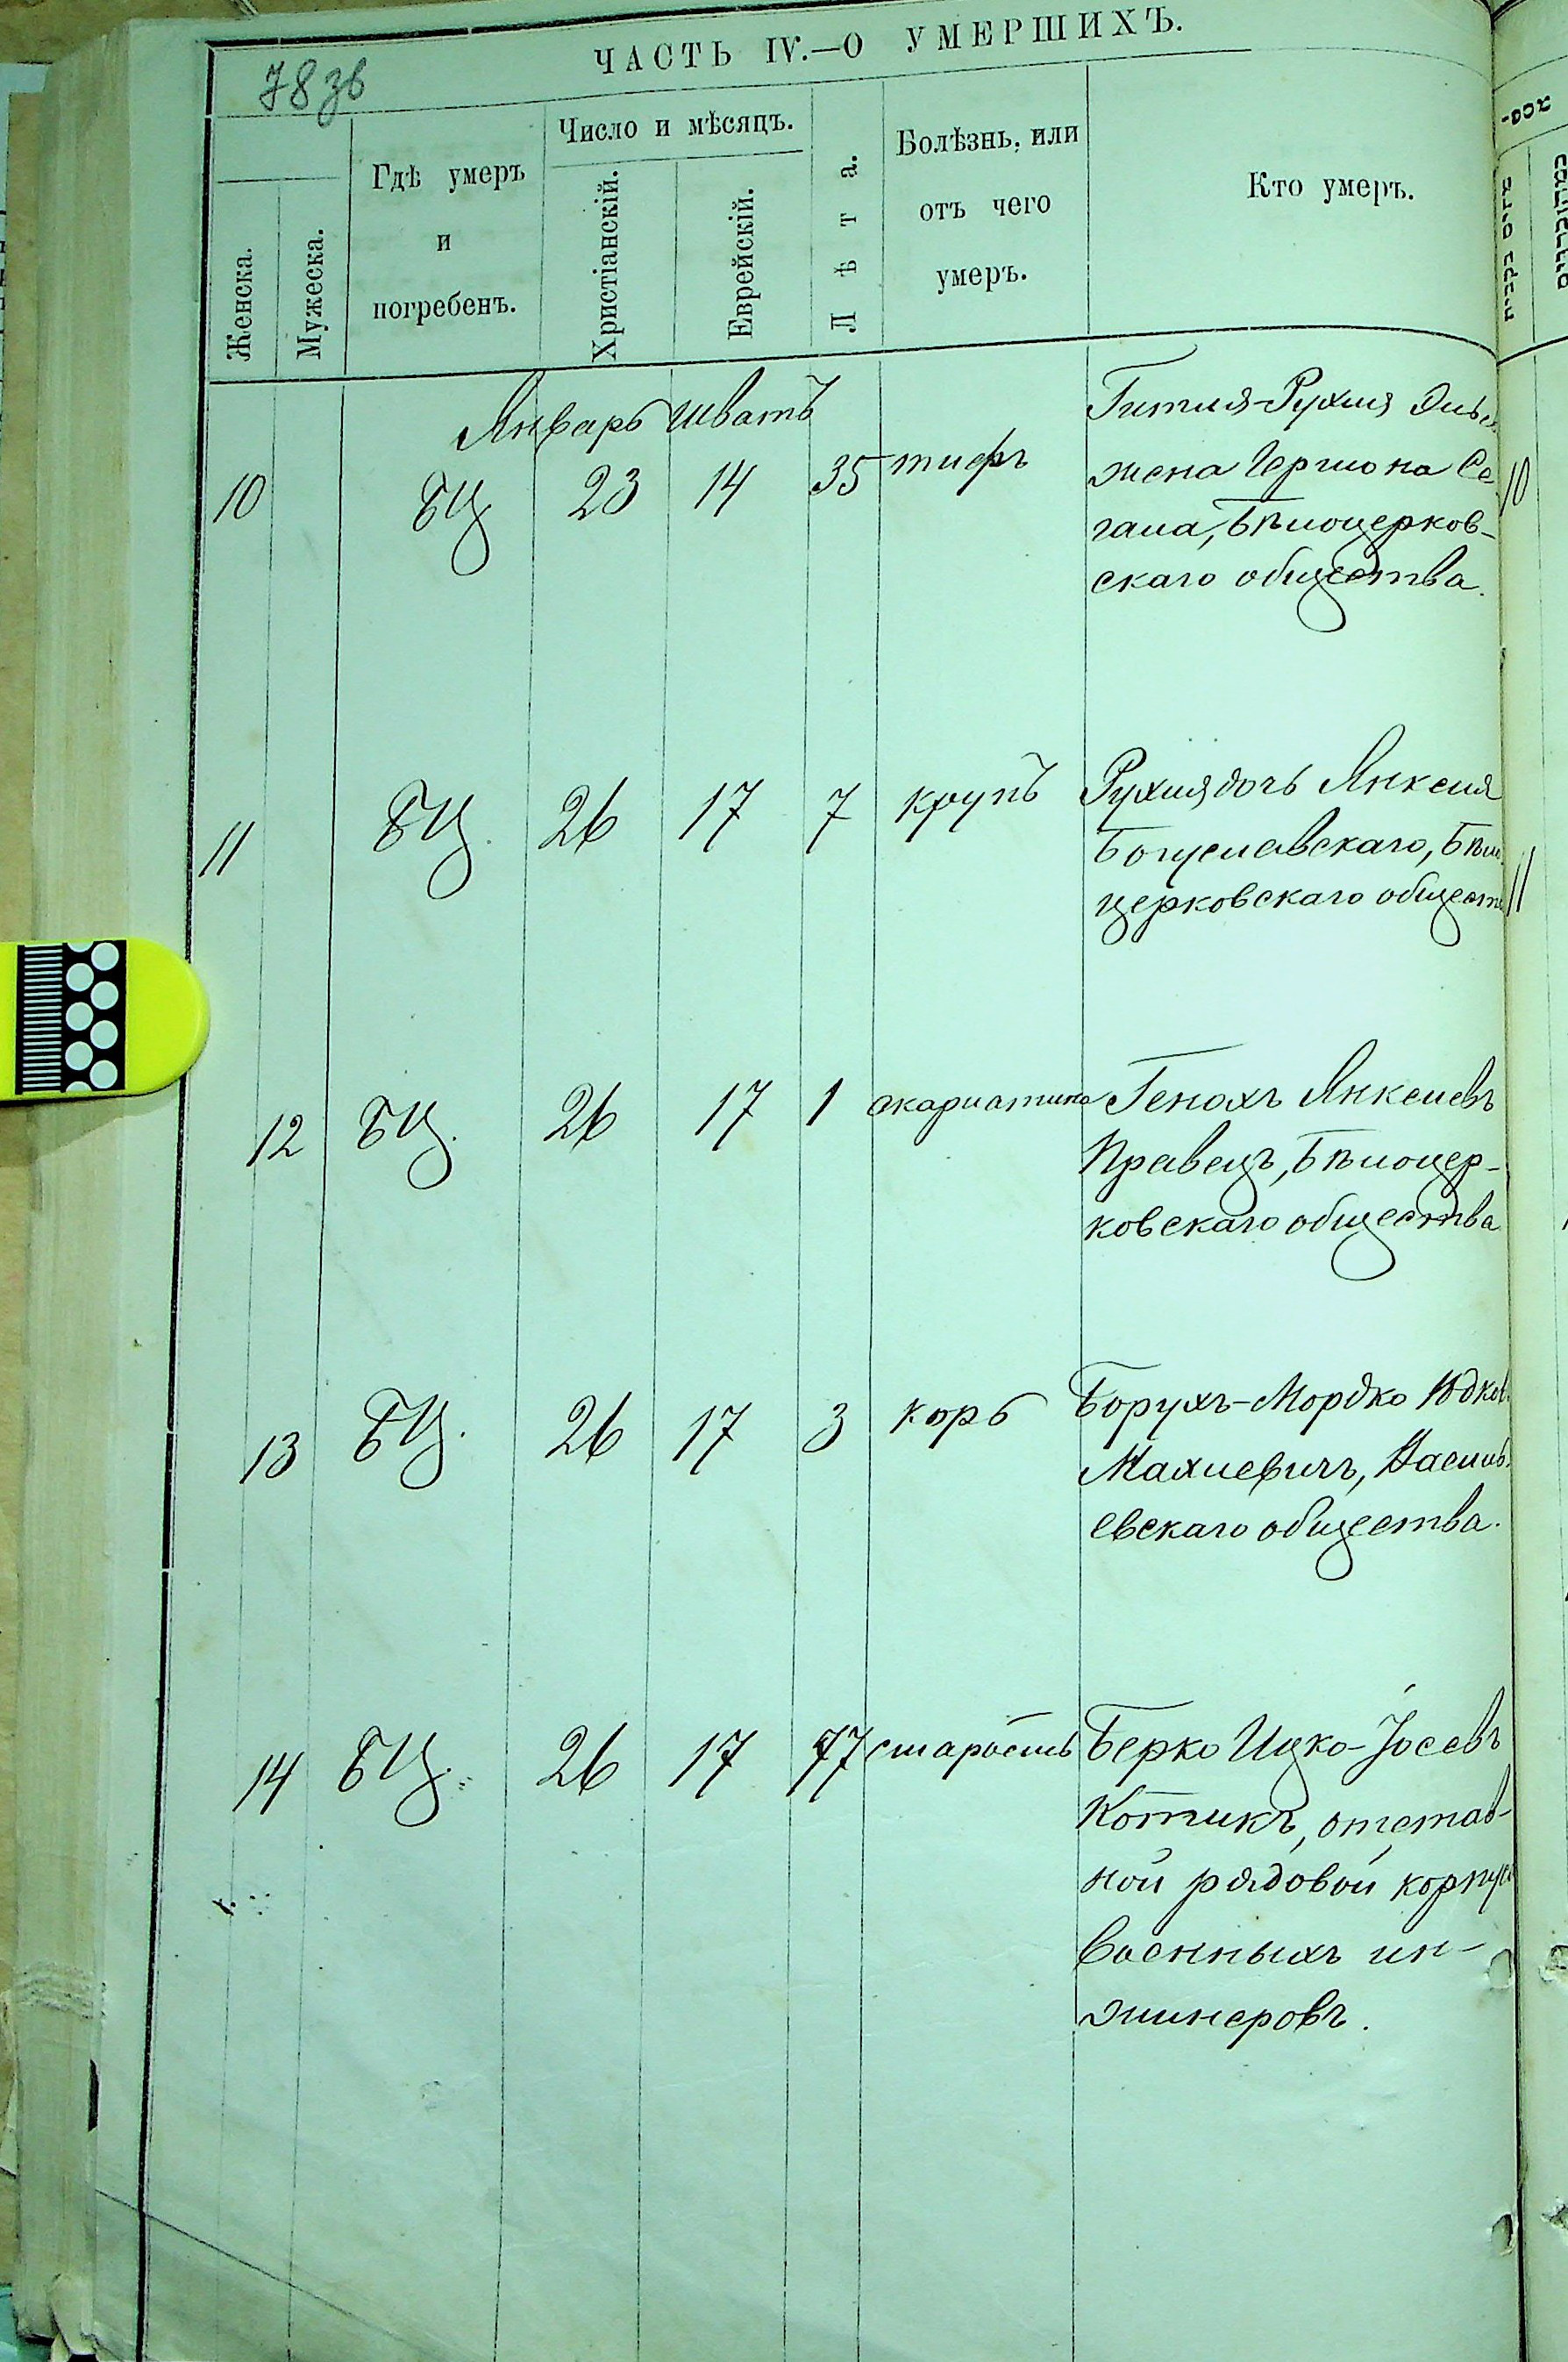 ЧАСТЬ IV.—О УМЕРШИХЪ.
78 зв
Женска.
Мужеска.
Гдѣ умеръ
и
погребенъ.
Число и мѣсяцъ.
Христіанскій.
Еврейскій.
Лѣта.
Болѣзнь, или
отъ чего
умеръ.
Кто умеръ.
Январь шватъ
10 БЦ 23 14 35 тифъ
Гитля-Рухля
жена Гершона Се-
гала, Бѣлоцерков-
скаго общества.
10
11 БЦ. 26 17 7 крупъ
Рухля дочь Янкеля
Богуславскаго, Бѣло
церковскаго обществ
11
12 БЦ. 26 17 1 скарлатина
Генохъ Янкелевъ
Правецъ, Бѣлоцер-
ковскаго общества
13 БЦ. 26 17 3 корь
Борухъ-Мордко Юдков
Махлевичъ, Василь
евскаго общества.
14 БЦ. 26 17 77 старость
Берко Ицко-Іосевъ
Котикъ, отстав-
ной рядовой корпуса
военныхъ ин-
жинеровъ.